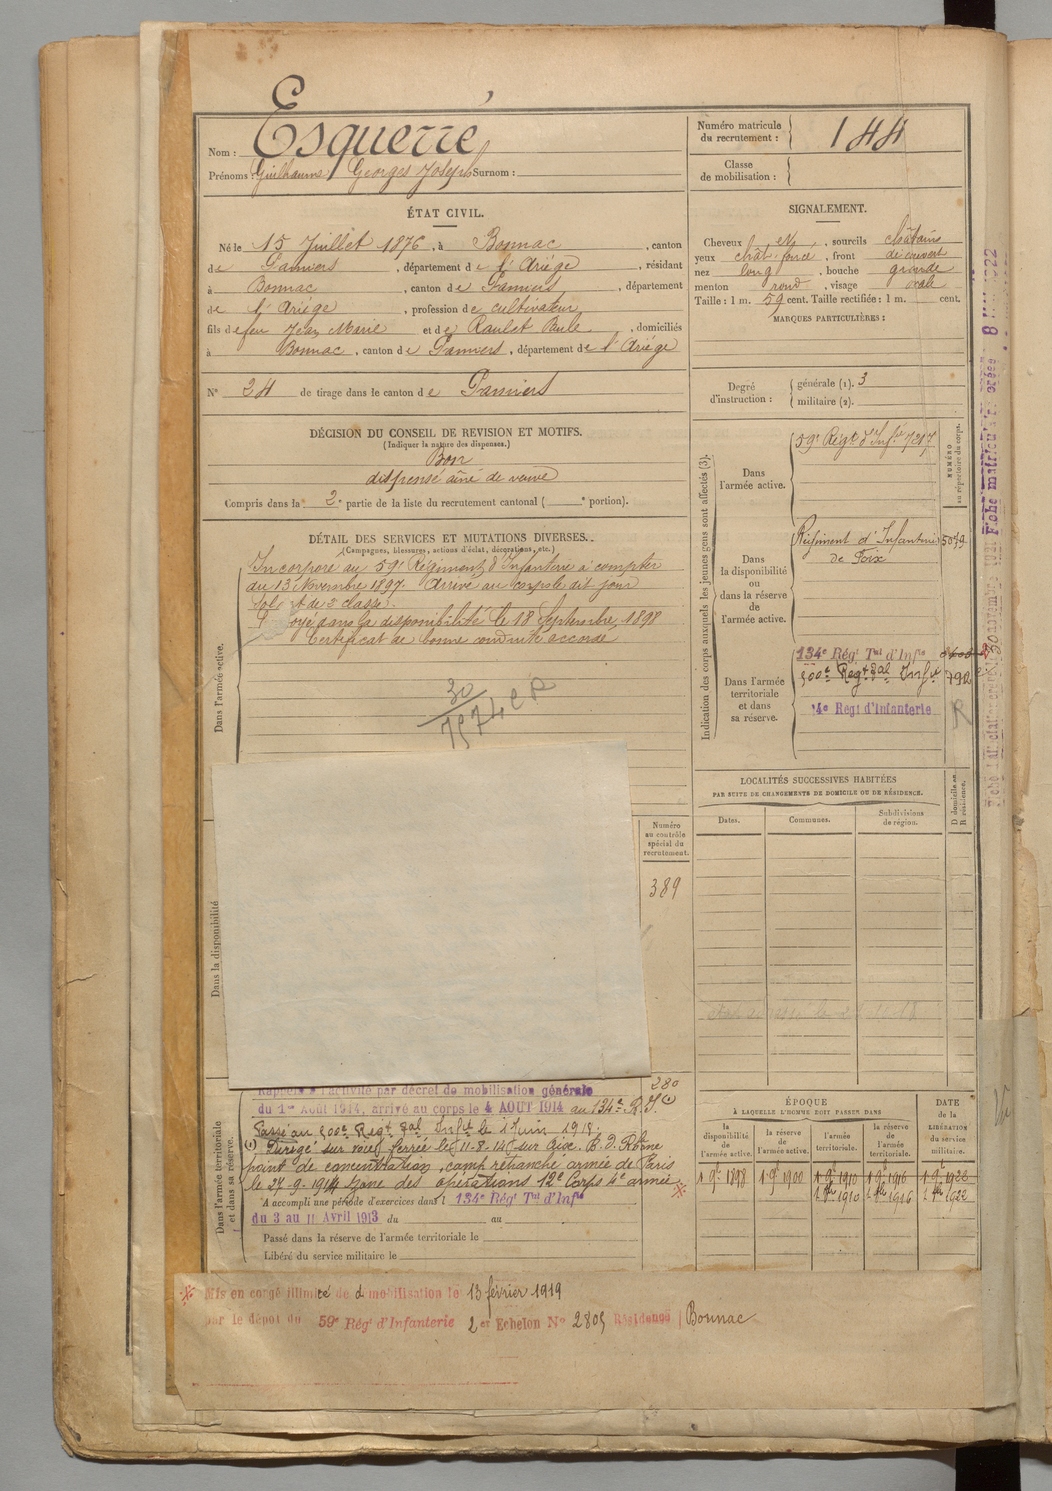 Nom : Esquerré
Prénoms : Guilhaume Georges Joseph Surnom :
Numéro matricule du recrutement : 144
Classe de mobilisation :
ÉTAT CIVIL.
Né le 15 Juillet 1876, à Bonnac, canton
de Pamiers, département de l'Ariége, résidant
à Bonnac, canton de Pamiers, département
de l'Ariége, profession de cultivateur
fils de feu Jean Marie et de Raulet Paule, domiciliés
à Bonnac, canton de Pamiers, département de l'Ariége
N° 24 de tirage dans le canton de Pamiers
SIGNALEMENT.
Cheveux et, sourcils châtains
yeux chât. foncé, front découvert
nez long, bouche grande
menton rond, visage ovale
Taille : 1 m. 59 cent. Taille rectifiée : 1 m. cent.
MARQUES PARTICULIÈRES :
Degré d'instruction : générale (1). 3
militaire (2).
DÉCISION DU CONSEIL DE REVISION ET MOTIFS.
(Indiquer la nature des dispenses.)
Bon
dispensé aîné de veuve
Compris dans la 2e partie de la liste du recrutement cantonal ( e portion).
DÉTAIL DES SERVICES ET MUTATIONS DIVERSES.
(Campagnes, blessures, actions d'éclat, décorations, etc.)
Dans l'armée active.
Incorporé au 59e Régiment d'Infanterie à compter
du 13 Novembre 1897. Arrivé au corps le dit jour
sol t de 2 classe.
dans la disponibilité le 18 Septembre 1898
Certificat de bonne conduite accordé
30
Indication des corps auxquels les jeunes gens sont affectés (3).
NUMÉRO au répertoire du corps.
Dans l'armée active.
59e Régt d'Infie
Dans la disponibilité ou dans la réserve de l'armée active.
Régiment d'Infanterie
de Foix
Dans l'armée territoriale et dans sa réserve.
134e Régt Tal d'Infie
500e Regt Tal Infie
14e Régt d'Infanterie
R
LOCALITÉS SUCCESSIVES HABITÉES
PAR SUITE DE CHANGEMENTS DE DOMICILE OU DE RÉSIDENCE.
Dates. Communes. Subdivisions de région. D domicile ou R résidence.
Dans la disponibilité
Numéro au contrôle spécial du recrutement.
389
280
Dans l'armée territoriale et dans sa réserve.
Rappelé à l'activité par décret de mobilisation générale
du 1er Août 1914, arrivé au corps le 4 AOUT 1914 au 134e R.I. (1)
Passé au 500e Regt Tal Infie le 1 Juin 1918.
(1) Dirigé sur voie ferrée le 11-8-14 sur Gier. B. D. Rhône
point de concentration, camp retranché armée de Paris
le 27-9-1914 zone des opérations 12e Corps 4e armée
A accompli une période d'exercices dans l 134e Régt Tal d'Infie
du 3 au 11 Avril 1913 du au
Passé dans la réserve de l'armée territoriale le
Libéré du service militaire le
ÉPOQUE
À LAQUELLE L'HOMME DOIT PASSER DANS
DATE de la LIBÉRATION du service militaire.
la disponibilité de l'armée active. la réserve de l'armée active. l'armée territoriale. la réserve de l'armée territoriale.
1 9e 1898 1 9e 1900 1 9e 1910 1 9e 1916 1 9e 1922
1910 1916 1922
Mis en congé illimité de démobilisation le 13 février 1919
par le dépôt du 59e Régt d'Infanterie 2 er Echelon N° 2805 Résidence Bonnac